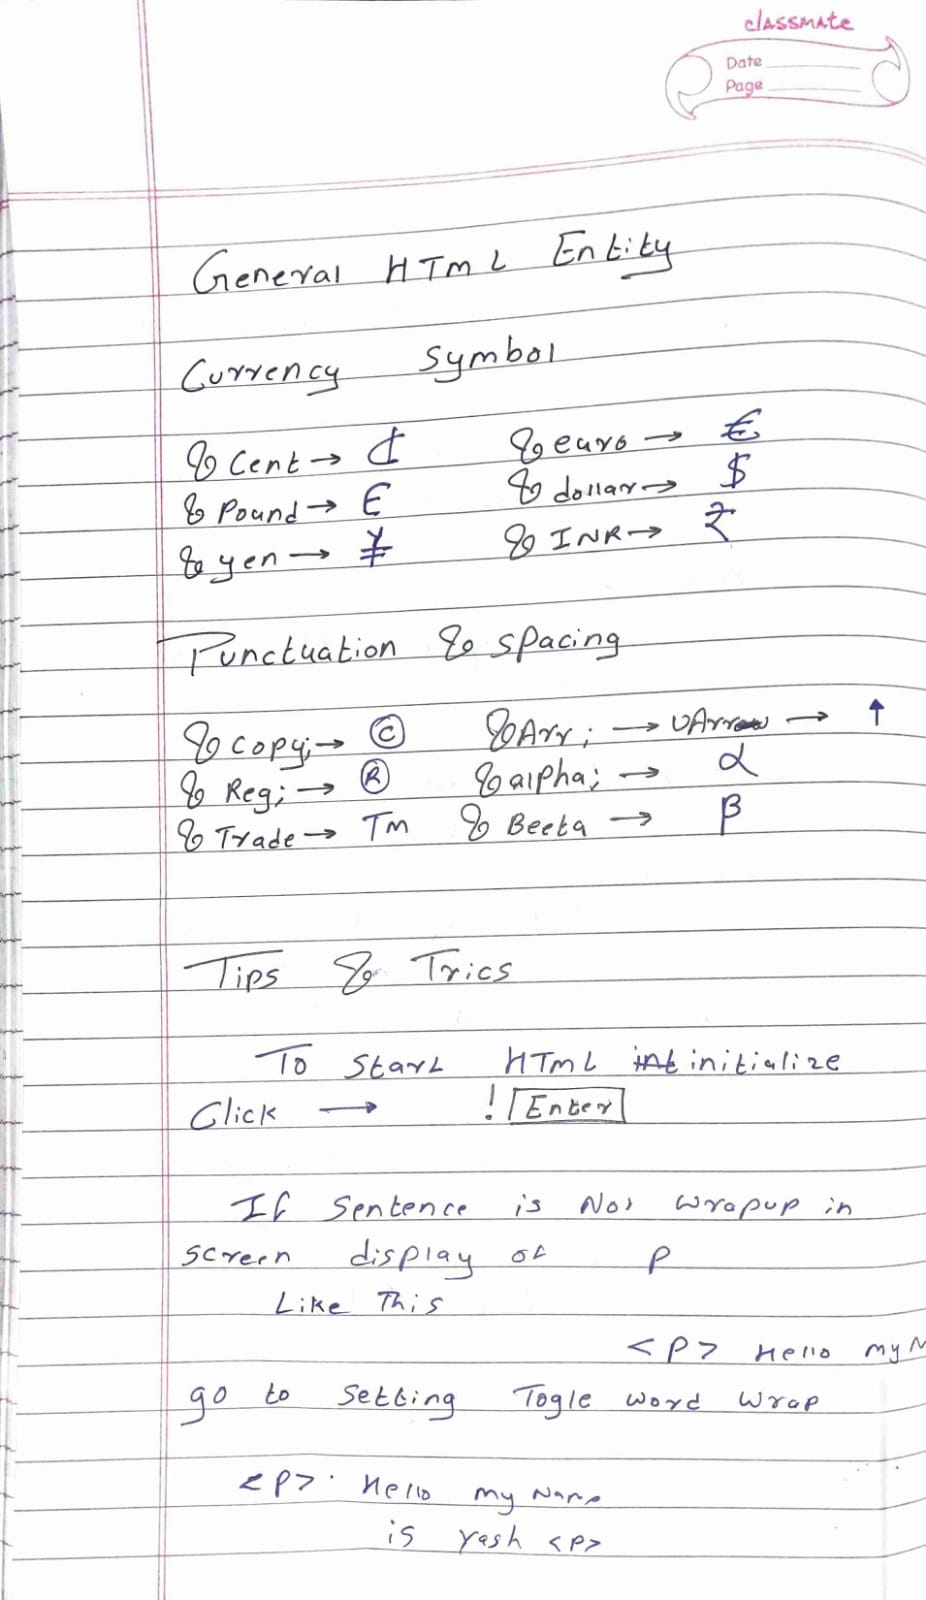 classmate
Date
Page
General HTML Entity
Currency Symbol
& Cent → ₵ & euro → €
& Pound → € & dollar → $
& yen → ¥ & INR → ₹
Punctuation & spacing
& copy; → © & Arr; → UArrow → ↑
& Reg; → ® & alpha; → α
& Trade → TM & Beeta → β
Tips & Trics
To Start HTML int initialize
Click → ! Enter
If Sentence is Not wrapup in
screen display of p
Like This
<P> Hello my N
go to Setting Togle word wrap
<P> Hello my Name
is Yash <P>